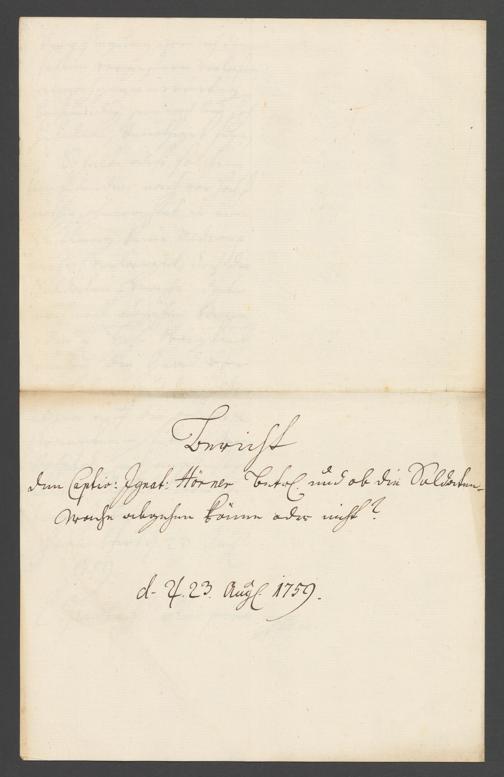 Bericht
den Captiv: Ignat: Hörner betrf. und ob die Soldaten-
wache abgehen könne oder nicht?
d. 23. Augl. 1759.